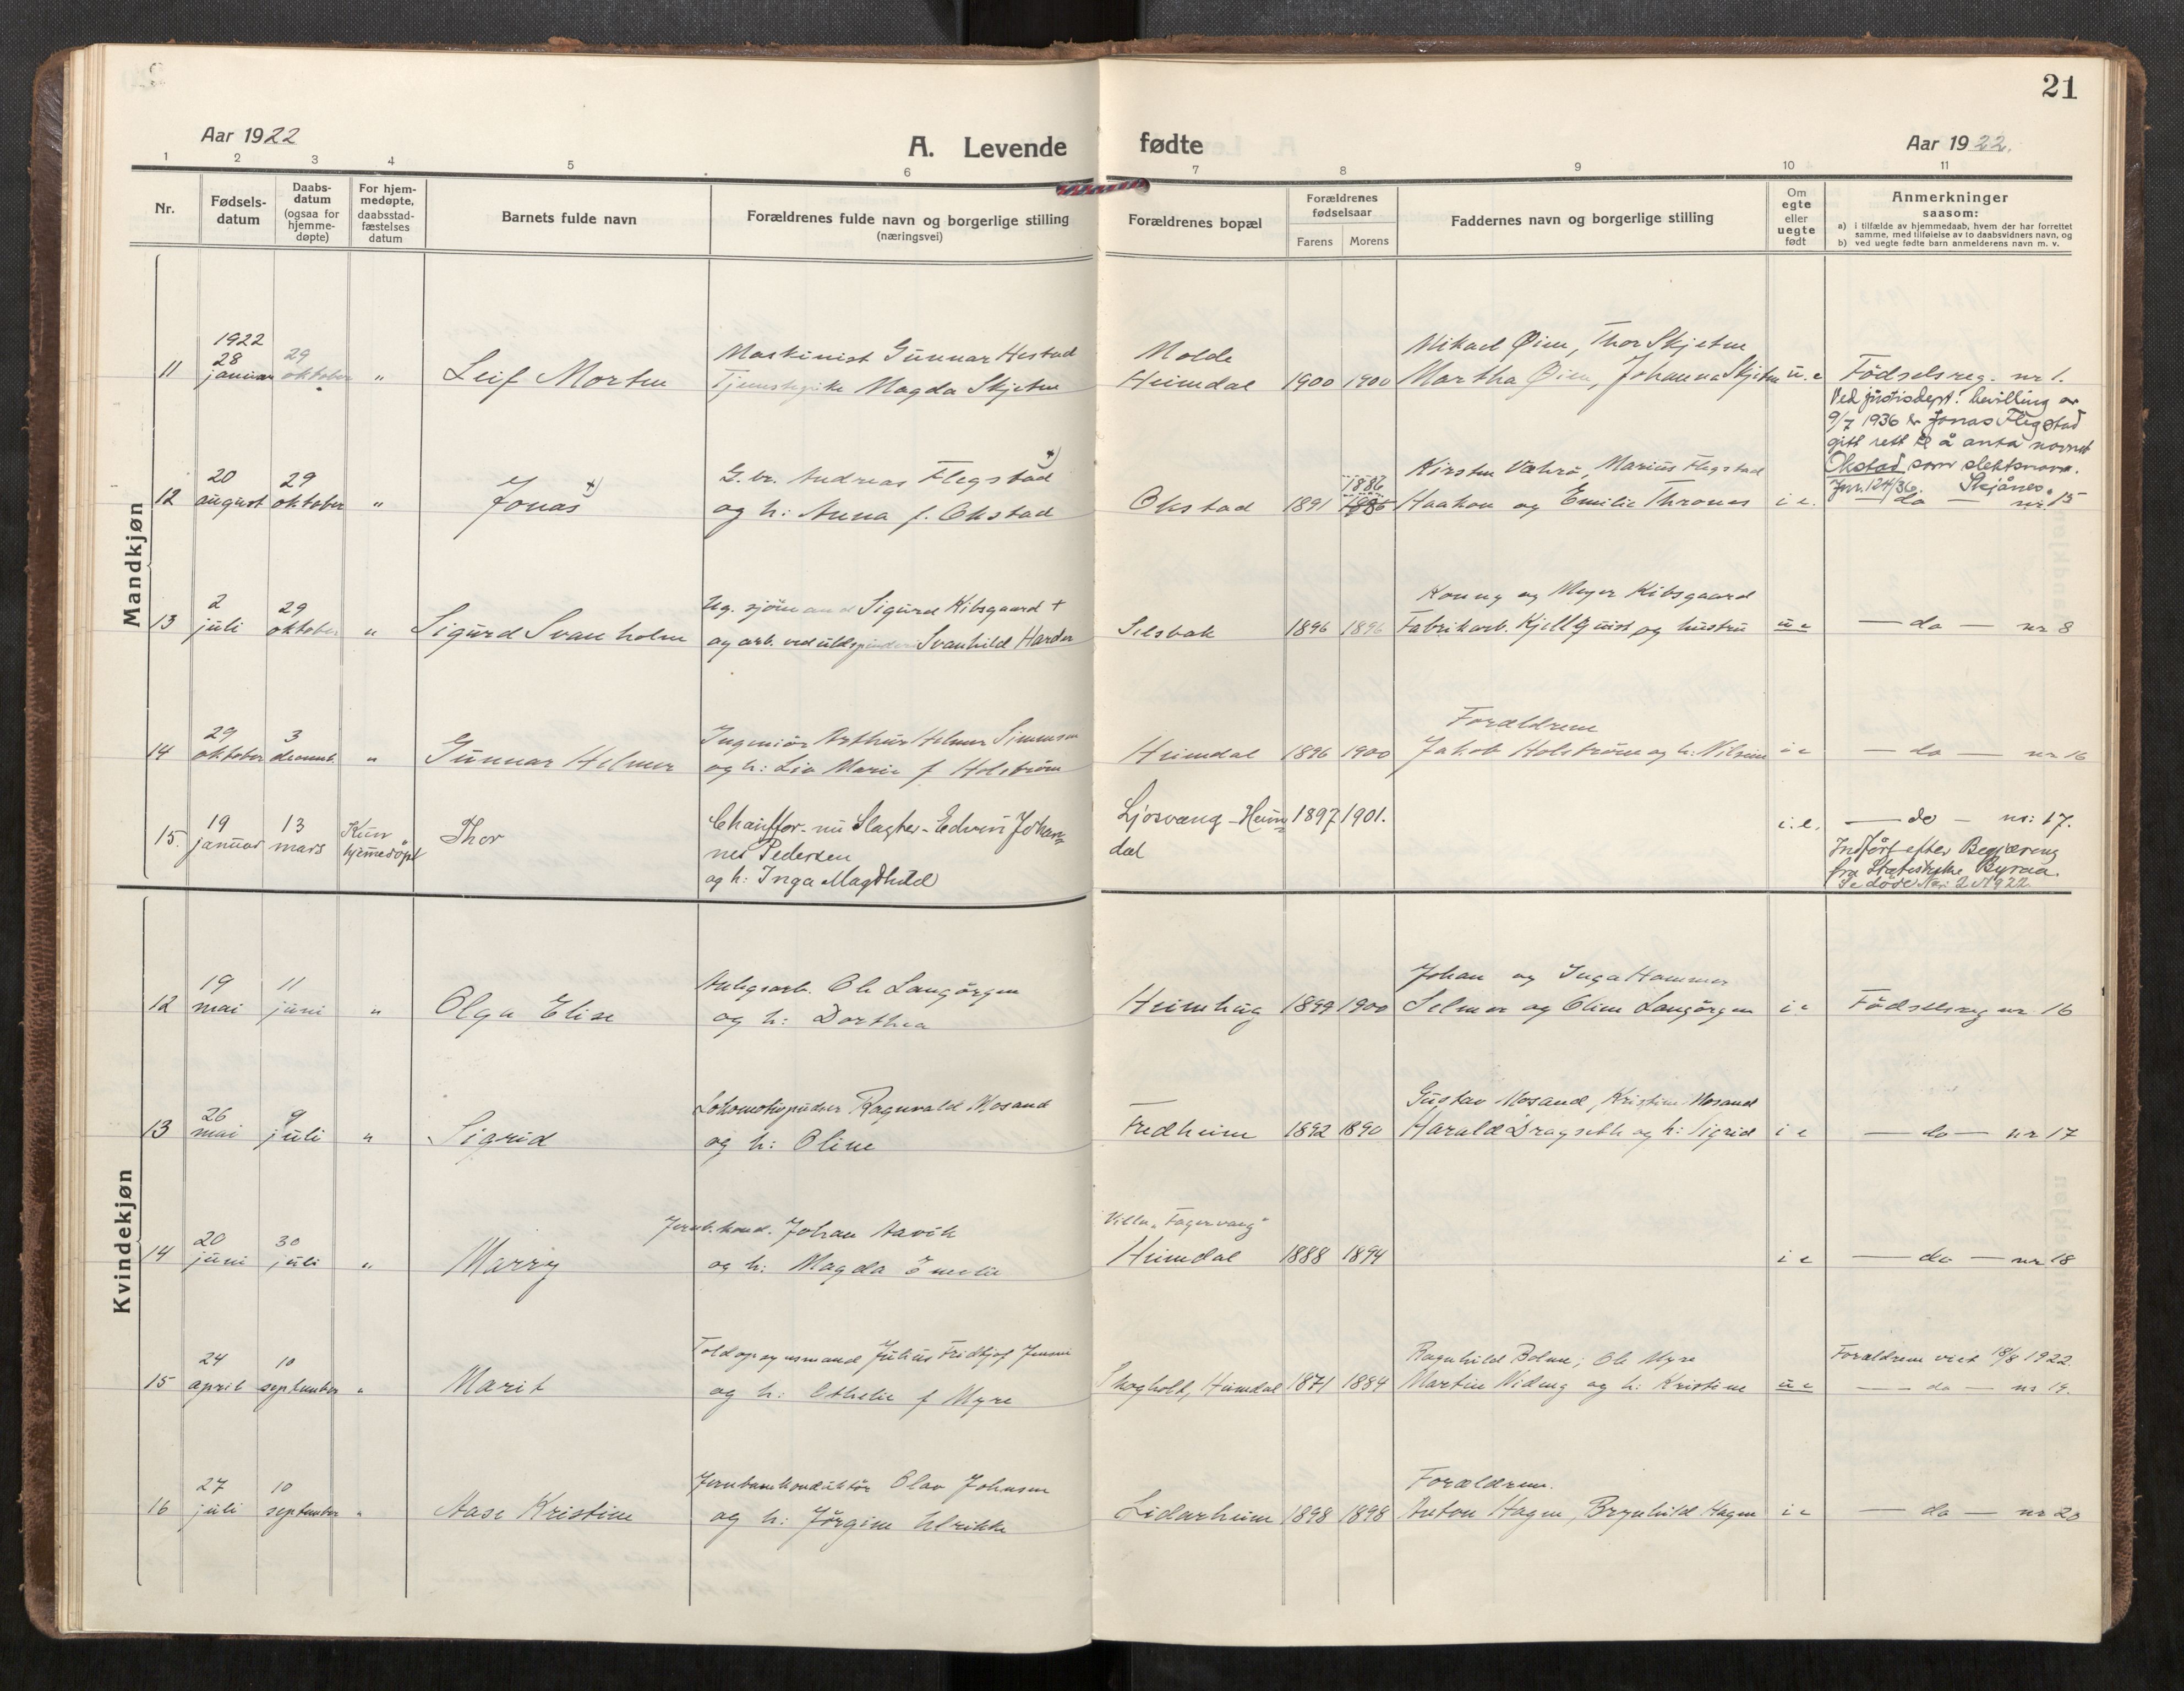 21
Aar 1922
A. Levende fødte
Aar 1922.
1 2 3 4 5 6 7 8 9 10 11
Nr.
Fødsels-
datum
Daabs-
datum
(ogsaa for
hjemme-
døpte)
For hjem-
medøpte,
daabsstad-
fæstelses
datum
Barnets fulde navn
Forældrenes fulde navn og borgerlige stilling
(næringsvei)
Forældrenes bopæl
Forældrenes
fødselsaar
Farens Morens
Faddernes navn og borgerlige stilling
Om
egte
eller
uegte
født
Anmerkninger
saasom:
a) i tilfælde av hjemmedaab, hvem der har forrettet
samme, med tilføielse av to daabsvidners navn, og
b) ved uegte fødte barn anmelderens navn m. v.
Mandkjøn
1922
11 28 januar 29 oktober " Leif Morten
Maskinist Gunnar Hestad
Tjenestepike Magda Skjetne
Molde
Heimdal 1900 1900
Mikael Øien, Thor Skjetne
Martha Øien, Johanna Skjetne u. e
Fødselsreg. nr 1.
12 20 august 29 oktober " Jonas +)
G.br. Andreas Flegstad +)
og h: Anna f. Okstad
Okstad 1891 1885 1886
Kirsten Væhre, Marius Flegstad
Haakon og Emilie Thrones i e.
Ved justisdept! bevilling av
9/7 1936 er Jonas Flegstad
gitt rett til å anta navnet
Okstad som slektsnavn.
Jnr. 124/36. Skjånes.
— do — nr. 15
13 2 juli 29 oktober " Sigurd Svanholm
Ug. sjømand Sigurd Kibsgaard +
og arb. ved uldspinderi Svanhild Harder
Selsbak 1896 1896
Konny og Meyer Kibsgaard
Fabrikarb. Kjellquist og hustru u e
— do — nr 8
14 29 oktober 3 decemb. " Gunnar Helmer
Ingeniør Arthur Helmer Simonsen
og h: Liv Marie f Holstrøm
Heimdal 1896 1900
Forældrene
Jakob Holstrøm og h: Nilsine i e
— do — nr 16
15. 19 januar 13 mars Kun hjemmedøpt Thor
Chauffør - nu Slagter - Edvin Johan-
nes Pedersen
og h: Inga Magdhild
Ljosvang - Heim-
dal 1897 1901. i. e.
— do — nr: 17.
Indført efter Begjæring
fra Statistiske Byraa.
Se døde Nr: 2 1922
Kvindekjøn
12 19 mai 11 juni " Olga Elise
Anlegsarb. Ole Langørgen
og h: Dorthea
Heimhug 1899 1900
Johan og Inga Hammer
Selmer og Oline Langørgen i e
Fødselsreg nr 16
13 26 mai 9 juli " Sigrid
Lokomotivpudser Ragnvald Mosand
og h: Oline
Fredheim 1892 1890
Gustav Mosand, Kristine Mosand
Harald Dragseth og h: Sigrid i e
— do — nr 17
14 20 juni 30 juli " Marry
Jernb.kond. Johan Aavik
og h: Magda Emelie
Villa "Fagervang"
Heimdal 1888 1894 i e
— do — nr 18
15 24 april 10 september " Marit
Toldopsynsmand Julius Fridtjof Jensen
og h: Othelie f Myre
Skogholt, Heimdal 1871 1884
Ragnhild Bolme; Ole Myre
Martin Videng og h: Kristine u e
Forældrene viet 18/8 1922.
— do — nr 19.
16 27 juli 10 september " Aase Kristine
Jernbanekonduktør Olav Johnsen
og h: Jørgine Ulrikke
Lidarheim 1898 1898
Forældrene.
Anton Hagen, Brynhild Hagen i e
— do — nr 20